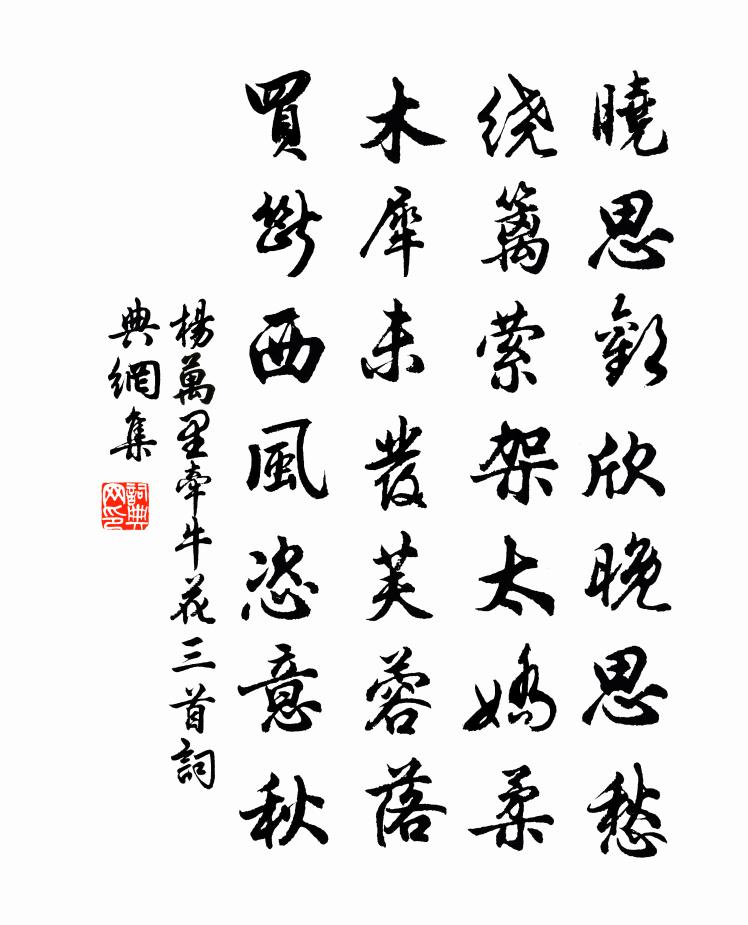 曉思歡欣晚思愁
绕篱萦架太嬌柔
木犀未發芙蓉落
買斷西風恣意秋
楊萬里牽牛花三首詞
典網集
詞典
网印